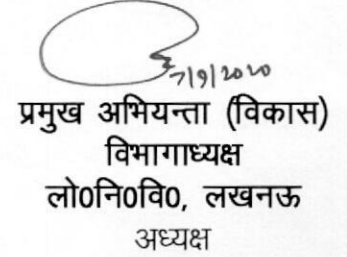 7/9/2020
प्रमुख अभियन्ता (विकास)
विभागाध्यक्ष
लो0नि0वि0, लखनऊ
अध्यक्ष